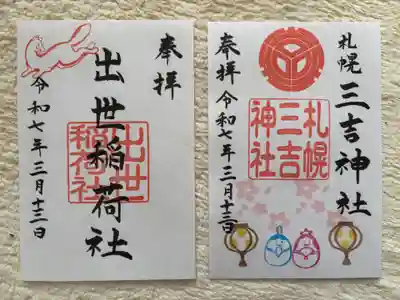 奉拝
出世稲荷社
出世
稲荷社
令和七年三月十三日
札幌
三吉神社
札幌
三吉
神社
奉拝
令和七年三月十三日